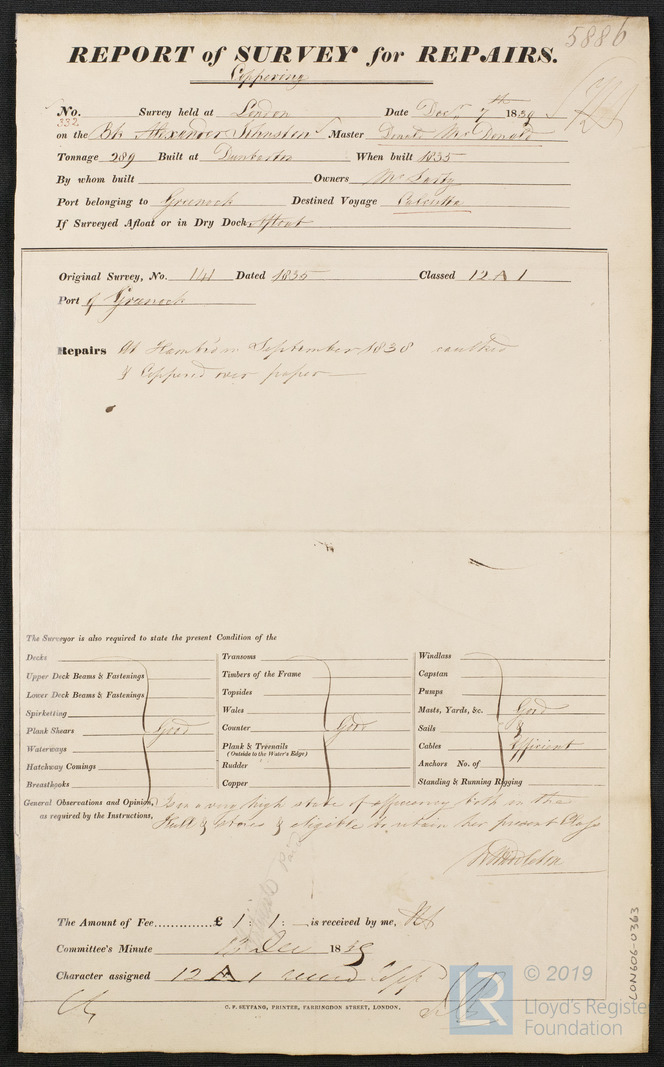 5886
REPORT of SURVEY for REPAIRS.
Coppering
No. 332 Survey held at London Date Decr 7th 1839
on the Bk Alexander Johnston Master Donald McDonald
Tonnage 289 Built at Dumbarton When built 1835
By whom built Owners
Port belonging to Greenock Destined Voyage Calcutta
If Surveyed Afloat or in Dry Dock Afloat
Original Survey, No. 141 Dated 1835 Classed 12 A 1
Port of Greenock
Repairs At in September 1838 caulked
& Coppered over paper
The Surveyor is also required to state the present Condition of the
Decks
Upper Deck Beams & Fastenings
Lower Deck Beams & Fastenings
Spirketting
Plank Shears Good
Waterways
Hatchway Comings
Breasthooks
Transoms
Timbers of the Frame
Topsides
Wales
Counter Good
Plank & Treenails
(Outside to the Water's Edge)
Rudder
Copper
Windlass
Capstan
Pumps
Masts, Yards, &c. Good
Sails &
Cables Efficient
Anchors No. of
Standing & Running Rigging
General Observations and Opinion, Is in a very high state of efficiency both in the
as required by the Instructions, Hull & Stores & eligible to retain her present Class
Middleton
Paid
The Amount of Fee..............£ 1 : 1 : is received by me,
Committee's Minute Dec 1839
Character assigned 12 A 1
C. F. SEYFANG, PRINTER, FARRINGDON STREET, LONDON.
LON606-0363
LR
© 2019
Lloyd's Register
Foundation